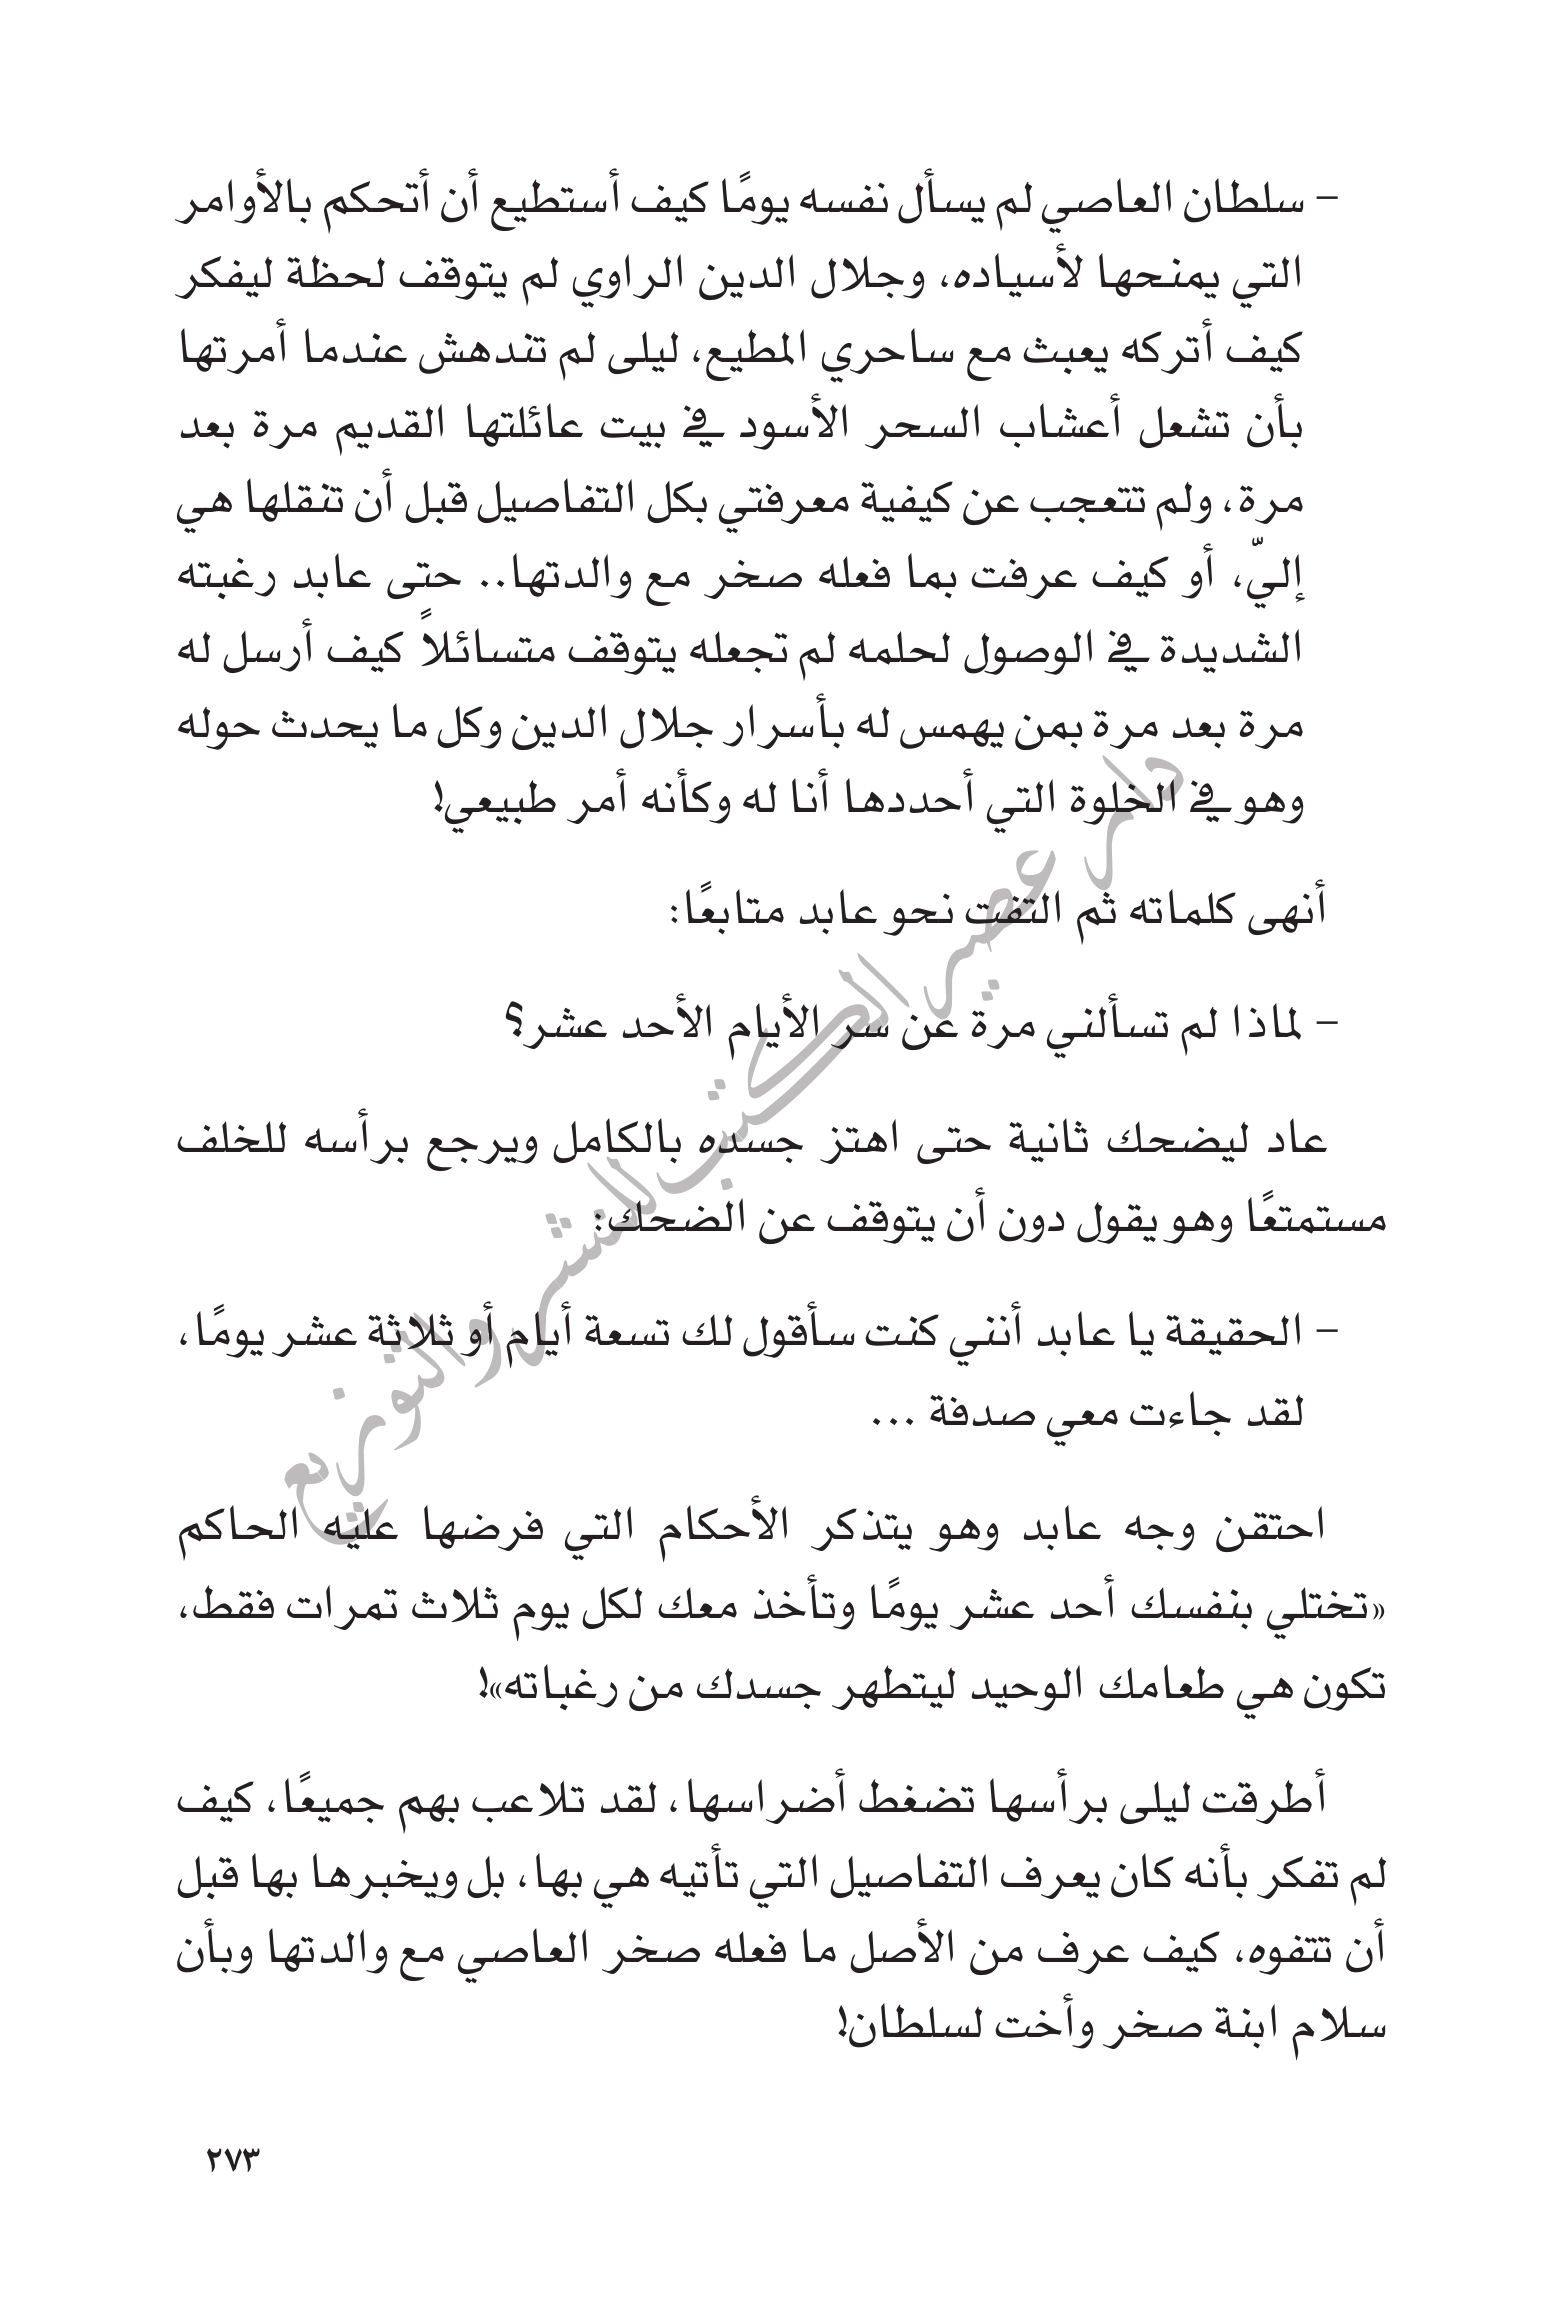 – سلطان العاصي لم يسأل نفسه يومًا كيف أستطيع أن أتحكم بالأوامر
التي يمنحها لأسياده، وجلال الدين الراوي لم يتوقف لحظة ليفكر
كيف أتركه يعبث مع ساحري المطيع، ليلى لم تندهش عندما أمرتها
بأن تشعل أعشاب السحر الأسود في بيت عائلتها القديم مرة بعد
مرة، ولم تتعجب عن كيفية معرفتي بكل التفاصيل قبل أن تنقلها هي
إليّ، أو كيف عرفت بما فعله صخر مع والدتها.. حتى عابد رغبته
الشديدة في الوصول لحلمه لم تجعله يتوقف متسائلاً كيف أرسل له
مرة بعد مرة بمن يهمس له بأسرار جلال الدين وكل ما يحدث حوله
وهو في الخلوة التي أحددها أنا له وكأنه أمر طبيعي!
أنهى كلماته ثم التفت نحو عابد متابعًا:
– لماذا لم تسألني مرة عن سر الأيام الأحد عشر؟
عاد ليضحك ثانية حتى اهتز جسده بالكامل ويرجع برأسه للخلف
مستمتعًا وهو يقول دون أن يتوقف عن الضحك:
– الحقيقة يا عابد أنني كنت سأقول لك تسعة أيام أو ثلاثة عشر يومًا،
لقد جاءت معي صدفة ...
احتقن وجه عابد وهو يتذكر الأحكام التي فرضها عليه الحاكم
«تختلي بنفسك أحد عشر يومًا وتأخذ معك لكل يوم ثلاث تمرات فقط،
تكون هي طعامك الوحيد ليتطهر جسدك من رغباته»!
أطرقت ليلى برأسها تضغط أضراسها، لقد تلاعب بهم جميعًا، كيف
لم تفكر بأنه كان يعرف التفاصيل التي تأتيه هي بها، بل ويخبرها بها قبل
أن تتفوه، كيف عرف من الأصل ما فعله صخر العاصي مع والدتها وبأن
سلام ابنة صخر وأخت لسلطان!
٢٧٣
دار عصير الكتب للنشر والتوزيع